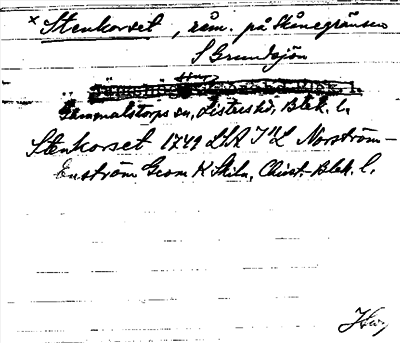 × Stenkorset, råm. på Skånegränsen
S Grundsjön
Gammalstorps sn, Listers hd, Blek. l.
Stenkorset 1749 LSA Norström-
Enström Geom K Skiln, Christ-Blek. l.